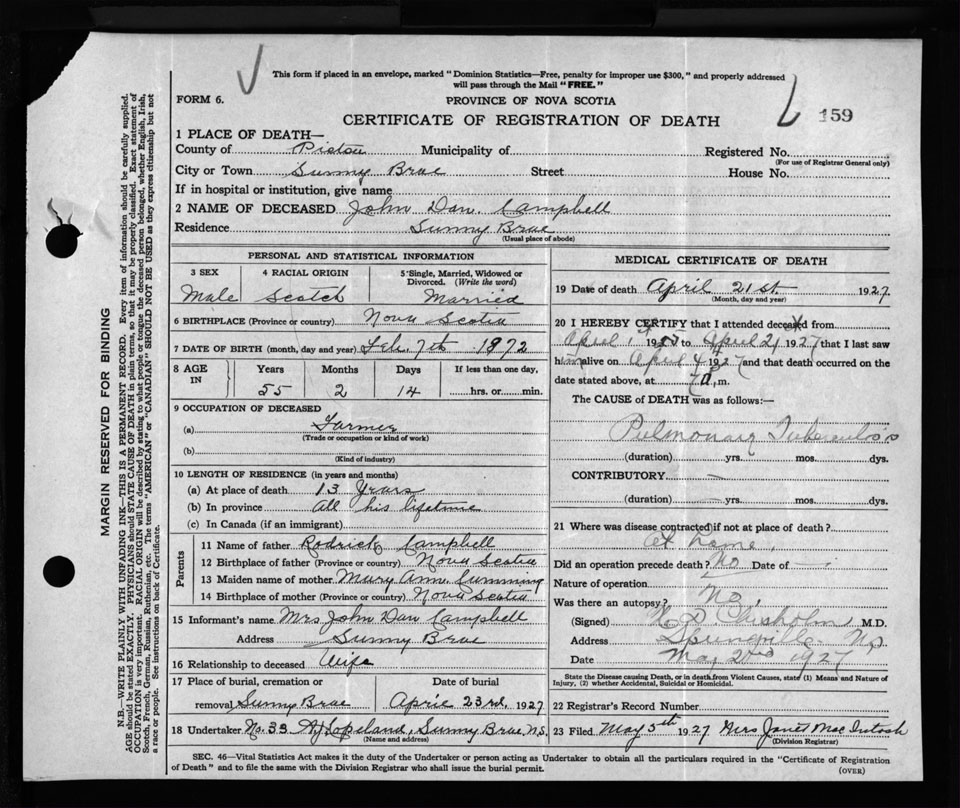 This form if placed in an envelope, marked "Dominion Statistics—Free, penalty for improper use $300," and properly addressed
will pass through the Mail "FREE."
FORM 6.
PROVINCE OF NOVA SCOTIA
159
CERTIFICATE OF REGISTRATION OF DEATH
1 PLACE OF DEATH—
County of Pictou Municipality of Registered No.
(For use of Registrar General only)
City or Town Sunny Brae Street House No.
If in hospital or institution, give name
2 NAME OF DECEASED John Dan. Campbell
Residence Sunny Brae
(Usual place of abode)
MARGIN RESERVED FOR BINDING
N.B.—WRITE PLAINLY WITH UNFADING INK—THIS IS A PERMANENT RECORD. Every item of information should be carefully supplied.
AGE should be stated EXACTLY. PHYSICIANS should STATE CAUSE OF DEATH in plain terms, so that it may be properly classified. Exact statement of
OCCUPATION is very important. RACIAL ORIGIN will be described by stating to what people or tongue the deceased person belonged, whether English, Irish,
Scotch, French, German, Russian, Ruthenian, etc. The terms "AMERICAN" or "CANADIAN" SHOULD NOT BE USED as they express citizenship but not
a race or people. See instructions on back of Certificate.
PERSONAL AND STATISTICAL INFORMATION
3 SEX
Male
4 RACIAL ORIGIN
Scotch
5 Single, Married, Widowed or
Divorced. (Write the word)
Married
6 BIRTHPLACE (Province or country) Nova Scotia
7 DATE OF BIRTH (month, day and year) Feb. 7th 1872
8 AGE
IN
Years
55
Months
2
Days
14
If less than one day,
hrs. or min.
9 OCCUPATION OF DECEASED
(a) Farmer
(Trade or occupation or kind of work)
(b)
(Kind of industry)
10 LENGTH OF RESIDENCE (in years and months)
(a) At place of death 13 Years
(b) In province All his lifetime
(c) In Canada (if an immigrant)
Parents
11 Name of father Rodrick Campbell
12 Birthplace of father (Province or country) Nova Scotia
13 Maiden name of mother Mary Ann Cumming
14 Birthplace of mother (Province or country) Nova Scotia
15 Informant's name Mrs John Dan Campbell
Address Sunny Brae
16 Relationship to deceased Wife
17 Place of burial, cremation or
removal Sunny Brae
Date of burial
April 23rd. 1927
18 Undertaker No. 35 A J Copeland, Sunny Brae N.S.
(Name and address)
MEDICAL CERTIFICATE OF DEATH
19 Date of death April 21st. 1927
(Month, day and year)
20 I HEREBY CERTIFY that I attended deceased from
April 1st 19 to April 21 1927 that I last saw
him alive on April 4 1927 and that death occurred on the
date stated above, at 7 a. m.
The CAUSE of DEATH was as follows:—
Pulmonary Tuberculosis
(duration) yrs. mos. dys.
CONTRIBUTORY —
(duration) yrs. mos. dys.
21 Where was disease contracted if not at place of death?
at home.
Did an operation precede death? No Date of —
Nature of operation
Was there an autopsy? No.
(Signed) Chisholm M.D.
Address Springville N.S
Date May 2nd 1927
State the Disease causing Death, or in death from Violent Causes, state (1) Means and Nature of
Injury, (2) whether Accidental, Suicidal or Homicidal.
22 Registrar's Record Number
23 Filed May 5th 1927 Mrs Janet MacIntosh
(Division Registrar)
SEC. 46—Vital Statistics Act makes it the duty of the Undertaker or person acting as Undertaker to obtain all the particulars required in the "Certificate of Registration
of Death" and to file the same with the Division Registrar who shall issue the burial permit.
(OVER)